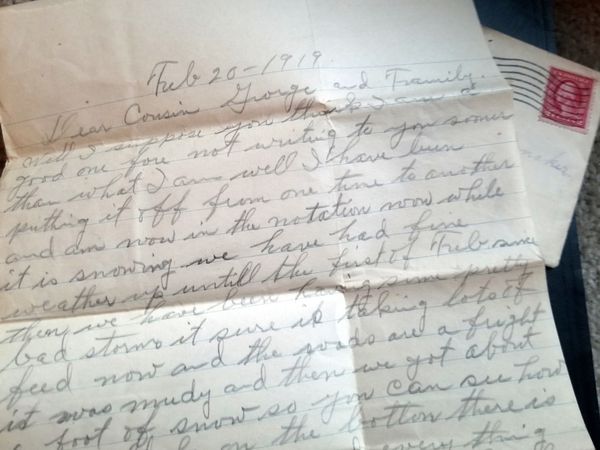 Feb 20-1919.
Dear Cousin George and Family.
Well I suppose you think I am a
good one fore not writing to you sooner
than what I am well I have been
putting it off from one time to another
and am now in the notation now while
it is snowing we have had fine
weather up untill the first of Feb since
then we have been having some pretty
bad storms it sure is taking lots of
feed now and the roads are a fright
it was mudy and then we got about
a foot of snow so you can see how
on the bottom there is
every thing